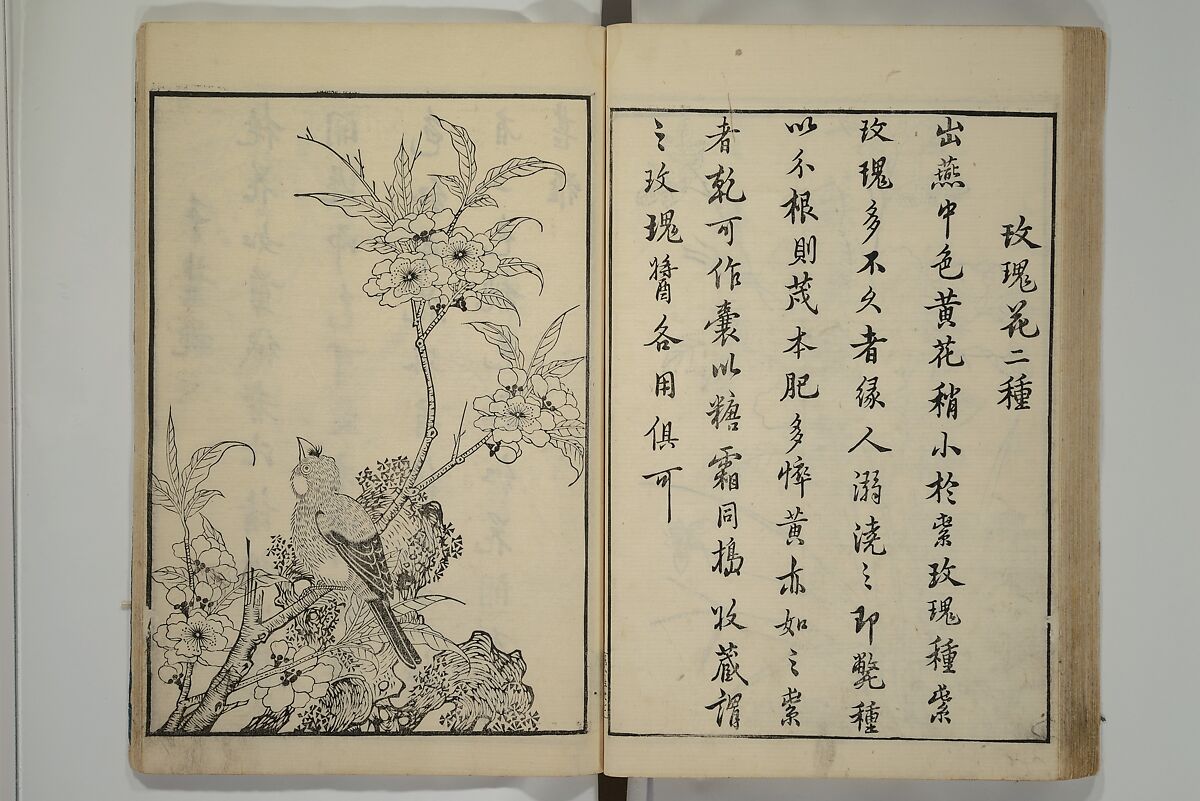 玫瑰花二種
出燕中色黄花稍小於紫玫瑰種紫
玫瑰多不久者縁人溺澆之即斃種
以分根則茂本肥多悴黄亦如之紫
者乾可作囊以糖霜同搗收藏謂
之玫瑰醬各用俱可